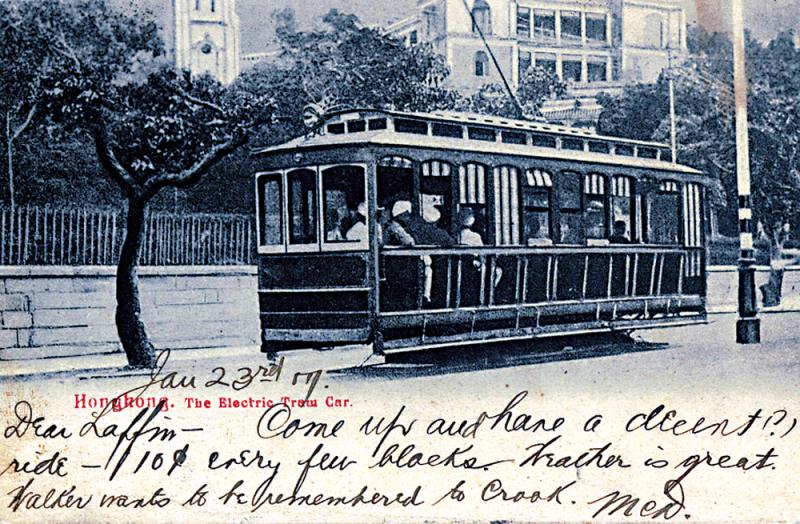 Jan 23rd 07.
Hongkong. The Electric Tram Car.
Dear Laffin— Come up and have a decent(?)
ride — 10¢ every few blocks. Weather is great.
Walker wants to be remembered to Crook.